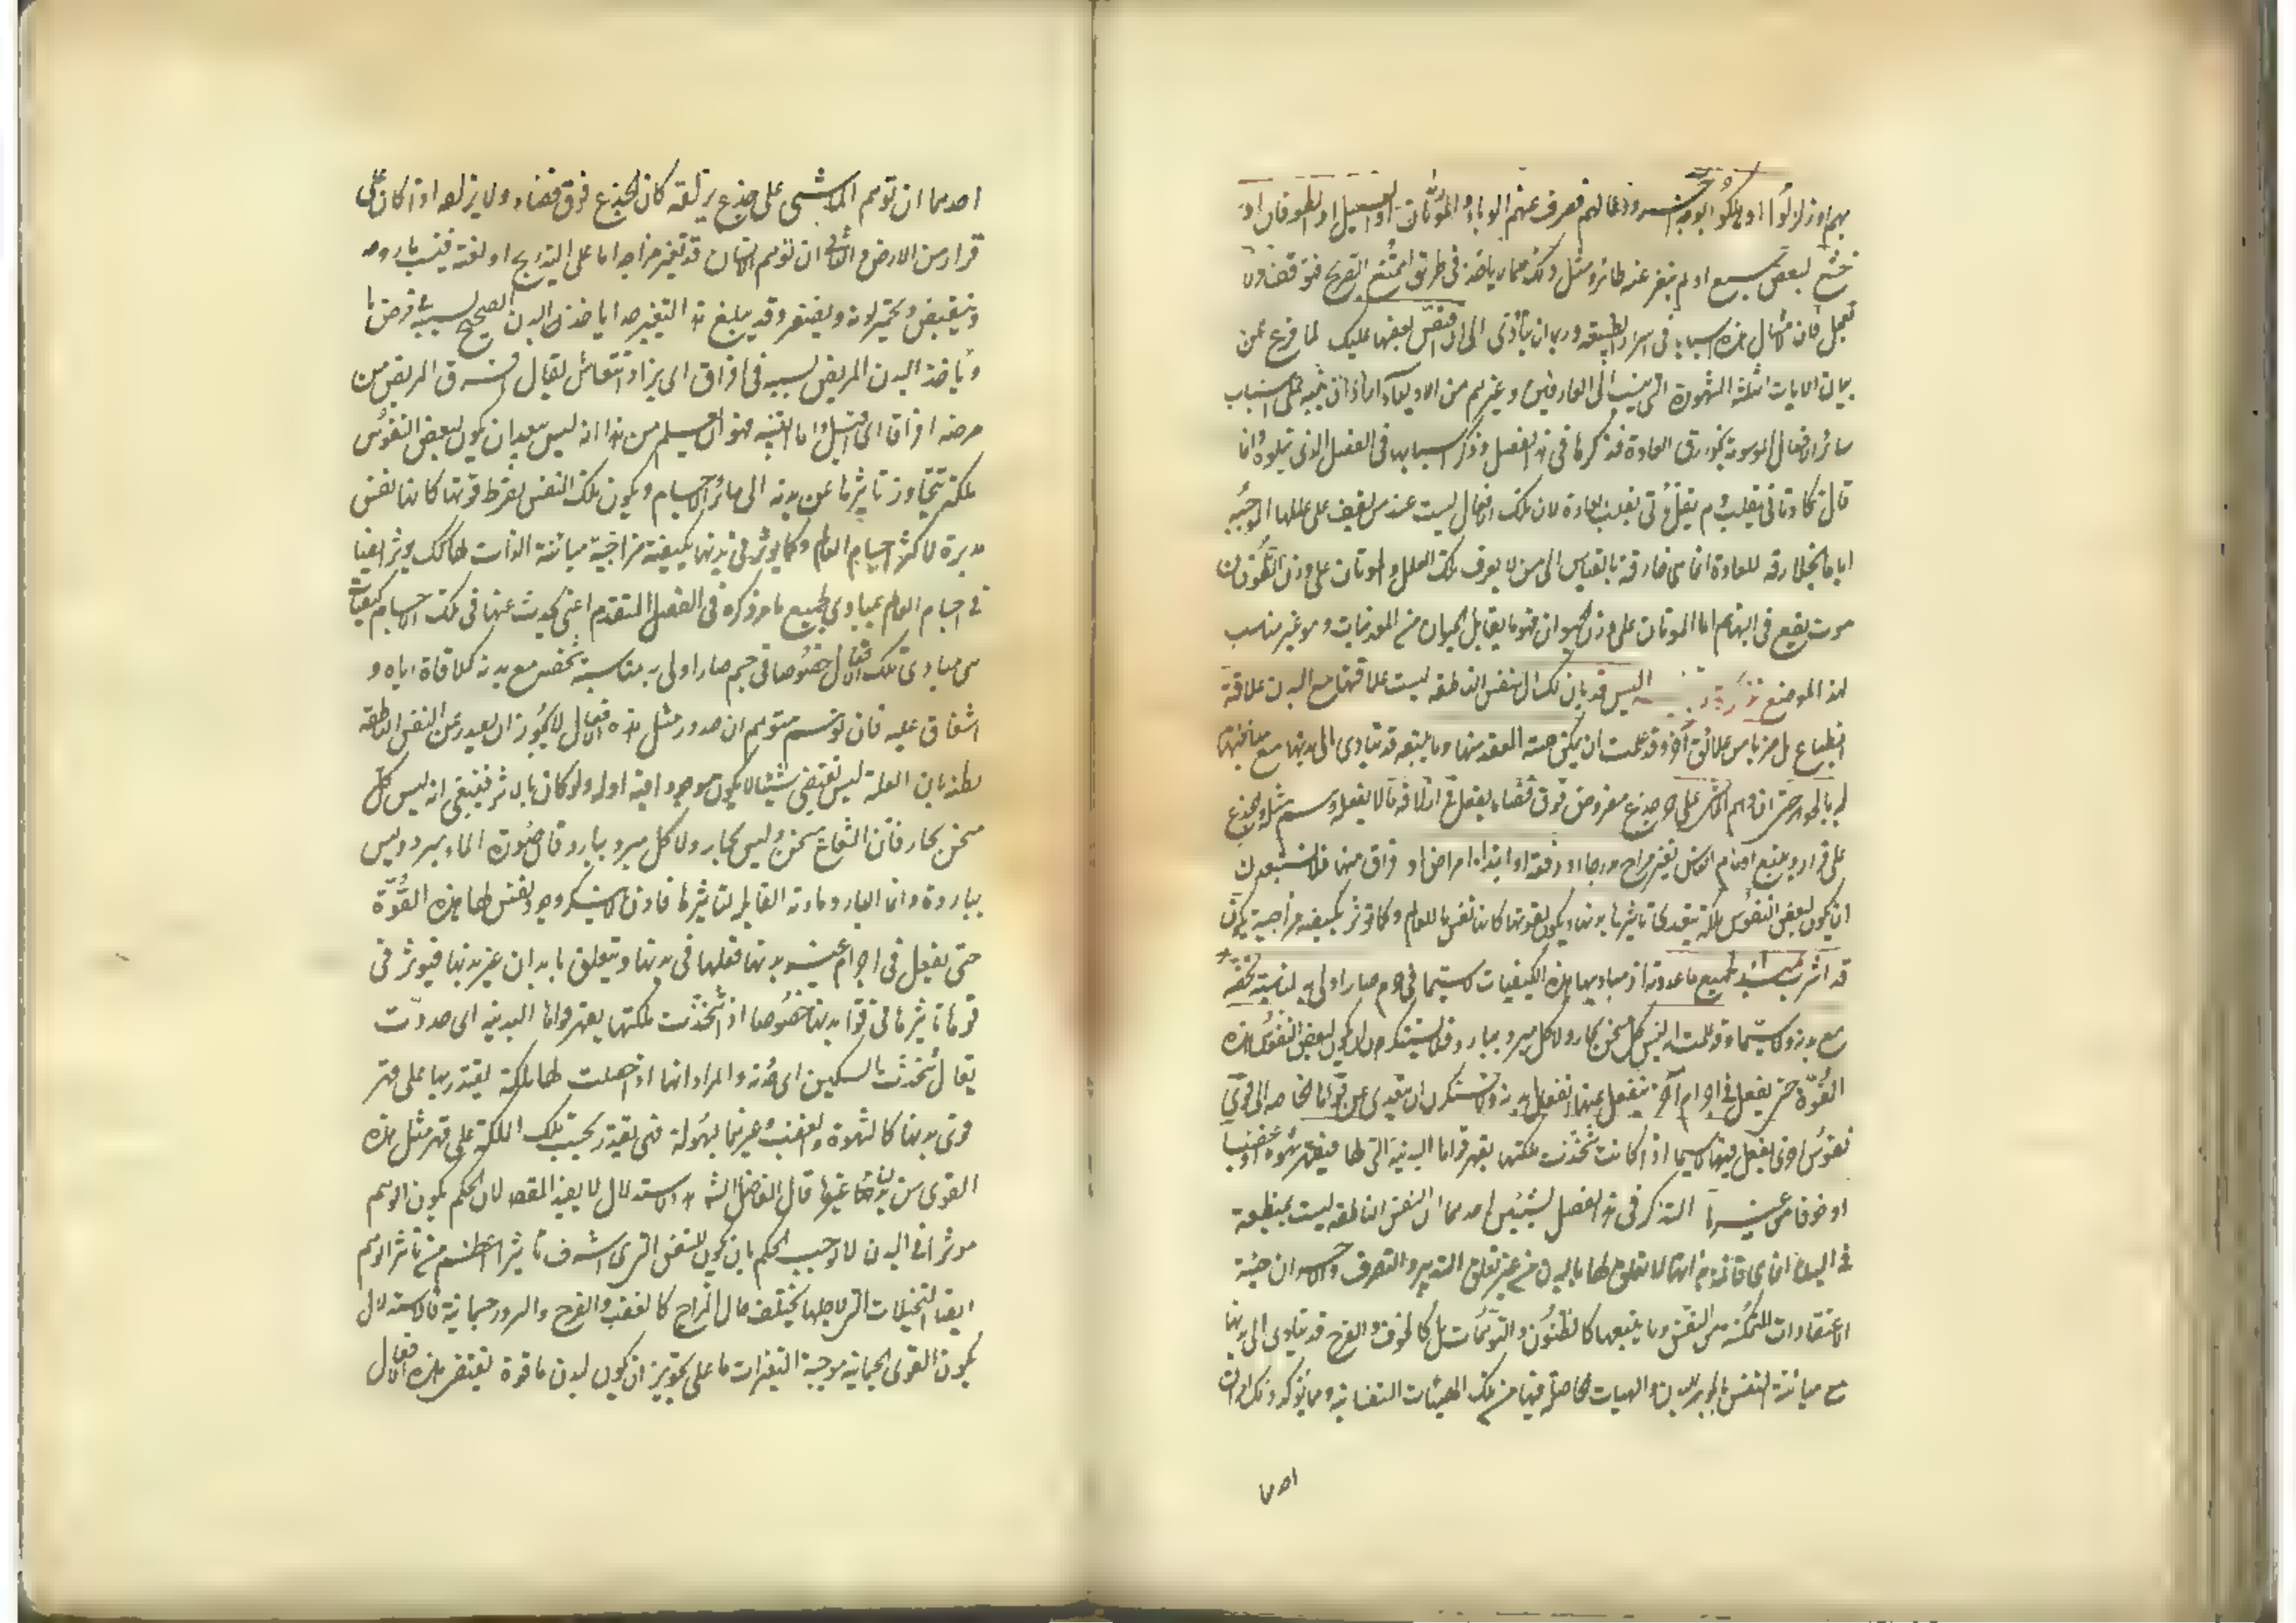 بهم او زلزلوا او هلكوا بوجه آخر ودعا لهم فصرف عنهم الوباء والموتان والسيل او الطوفان او
خشع لبعضهم سبع او لم ينفر عنه طائر ومثل ذلك مما لا ياخذ فى طريق الممتنع الصريح فتوقف ولا
تعجل فان لامثال هذه اسبابا فى اسرار الطبيعة وربما يتأتى الى ان اقتص بعضها عليك لما فرغ عن
بيان الايات الثلثة المشهورة التى ينسب الى العارفين وغيرهم من الاولياء اراد ان ينبه على اسباب
سائر الافعال الموسومة بخوارق العادة فذكرها فى هذا الفصل وذكر اسبابها فى الفصل الذى يتلوه وانما
قال تكاد تاتى بقلب ولم يقل تاتى بقلب العادة لان تلك الافعال ليست عند من يقف على عللها الموجبة
اياها بخارقة للعادة انما هى خارقة بالقياس الى من لا يعرف تلك العلل والموتان على وزن الطوفان
موت يقع فى البهائم اما الموتان على وزن الحيوان فهو ما يقابل الحيوان من المعدنيات وهو غير مناسب
لهذا الموضع اليس قد بان لك ان النفس الناطقة ليست علاقتها مع البدن علاقة
انطباع بل ضربا من علائق آخر وقد علمت ان تمكن هيئة العقد منها وما يتبعه قد يتادى الى بدنها مع مباينتها
له بالجوهر حتى ان وهم الماشى على جذع معروض فوق فضاء يفعل فى ازلاقه ما لا يفعله وهم مثله والجذع
على قرار ويتبع اوهام الناس تغير مزاج مدرجا او دفعة او ابتداء امراض او افراق منها فلا تستبعدن
ان يكون لبعض النفوس ملكة يتعدى تاثيرها بدنها ويكون لقوتها كانها نفس ما للعالم وكما تؤثر بكيفية مزاجية يكون
قد اثرت بمبدأ لجميع ما عددته اذ مباديها هذه الكيفيات لا سيما فى جرم صار اولى به لمناسبة تخصه
مع بدنه لا سيما وقد علمت انه ليس كل مسخن بحار ولا كل مبرد ببارد فلا تستنكرن ان يكون لبعض النفوس هذه
القوة حتى يفعل فى اجرام آخر ينفعل عنها انفعال بدنه ولا تستنكرن ان يتعدى عن قواها الخاصة الى قوى
نفوس اخرى يفعل فيها لا سيما اذا كانت شحذت ملكتها بقهر قواها البدنية التى لها فيقهر شهوة او غضبا
او خوفا من غيرها التذكر فى هذا الفصل لشيئين احدهما ان النفس الناطقة ليست بمنطبعة
فى البدن انما هى قائمة بذاتها لا تعلق لها بالبدن من غير تعلق التدبير والتصرف والاخر ان هيئة
الاعتقادات المتمكنة من النفس وما يتبعها كالظنون والتوهمات بل كالخوف والفرح قد يتادى الى بدنها
مع مباينة النفس بالجوهر للبدن والهيات الحاصلة فيها من تلك الهيئات النفسانية ومما يؤكد ذلك امران
احدهما
احدهما ان توهم الماشى على جذع يزلقه كان الجذع فوق فضاء ولا يزلقه اذا كان على
قرار من الارض والثانى ان توهم الانسان قد تغير مزاجه اما على التدريج او بغتة فينبسط روحه
وينقبض ويحمر لونه ويصفر وقد يبلغ هذا التغير حدا ياخذ البدن الصحيح بسببه فى مرض ما
وياخذ البدن المريض بسببه فى افراق اى برء او انتعاش يقال افرق المريض من
مرضه افراقا اى اقبل واما التنبيه فهو ان تعلم من هذا انه ليس ببعيد ان يكون لبعض النفوس
ملكة يتجاوز تاثيرها عن بدنه الى سائر الاجسام ويكون تلك النفس لفرط قوتها كانها نفس
مدبرة لاكثر اجسام العالم وكما يؤثر فى بدنها بكيفية مزاجية مباينة الذات لها كذلك يؤثر ايضا
فى اجسام العالم بمبادى لجميع ما مر ذكره فى الفصل المتقدم اعنى يحدث عنها فى تلك الاجسام كيفيات
هى مبادى تلك الافعال خصوصا فى جسم صار اولى به بمناسبة تخصه مع بدنه كملاقاة اياه و
اشفاق عليه فان توهم متوهم ان صدور مثل هذه الافعال لا يجوز ان يصدر عن النفس الناطقة
لظنه بان العلة ليس تقتضى شيئا لا يكون موجودا فيه او له ولو كان بالاثر فينبغى انه ليس كل
مسخن بحار فان الشعاع يسخن وليس بحار ولا كل مبرد ببارد فان صورة الماء يبرد وليس
بباردة وانما البارد مادته القابلة لتاثيرها فاذن لا يستنكر وجود نفس لها هذه القوة
حتى يفعل فى اجرام غير بدنها فعلها فى بدنها ويتعلق بابدان غير بدنها فيؤثر فى
قواها تاثيرها فى قوا بدنها خصوصا اذا شحذت ملكتها بقهر قواها البدنية اى حددت
يقال شحذت السكين اى حددته والمراد انها اذا حصلت لها ملكة يقتدر بها على قهر
قوى بدنها كالشهوة والغضب وغيرهما بسهولة فهى يقتدر بحسب تلك الملكة على قهر مثل هذه
القوى من بدن غيرها قال الفاضل الشارح هذا الاستدلال لا يفيد المقصود لان الحكم بكون الوهم
مؤثرا فى البدن لا يوجب الحكم بان يكون للنفس التى هى اشرف تاثيرا اعظم من تاثير الوهم
ايضا التخيلات التى لاجلها يختلف حال المزاج كالغضب والفرح والسرور جسمانية فالاستدلال
بكون القوى الجسمانية موجبة لتغيرات ما على تجويز ان يكون لبدن ما قوة تقتضى هذه الافعال